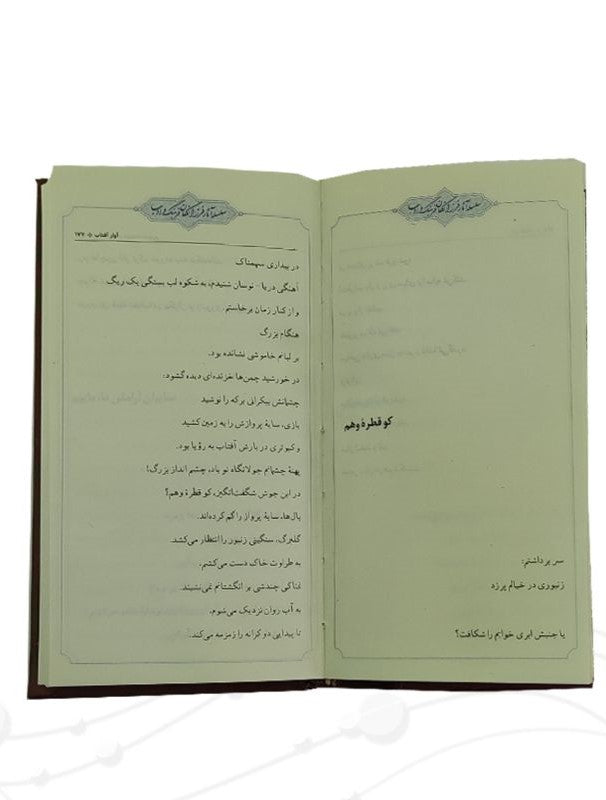 سلسله آثار فرزانگان فرهنگ و ادب
کو قطرهٔ وهم
سر برداشتم:
زنبوری در خیالم پر زد
یا جنبش ابری خوابم را شکافت؟
سلسله آثار فرزانگان فرهنگ و ادب
آوار آفتاب ۱۷۷
در بیداری سهمناک
آهنگی دریا - نوسان شنیدم، به شکوه لب بستگی یک ریگ
و از کنار زمان برخاستم.
هنگام بزرگ
بر لبانم خاموشی نشانده بود.
در خورشید چمن‌ها خزنده‌ای دیده گشود:
چشمانش بیکرانی برکه را نوشید
بازی، سایهٔ پروازش را به زمین کشید
و کبوتری در بارش آفتاب به رؤیا بود.
پهنهٔ چشمانم جولانگاه تو باد، چشم انداز بزرگ!
در این جوش شگفت‌انگیز، کو قطرهٔ وهم؟
بال‌ها، سایهٔ پرواز را گم کرده‌اند.
گلبرگ، سنگینی زنبور را انتظار می‌کشد.
به طراوت خاک دست می‌کشم،
نمناکی چندشی بر انگشتانم نمی‌نشیند.
به آب روان نزدیک می‌شوم،
نا پیدایی دو کرانه را زمزمه می‌کند.